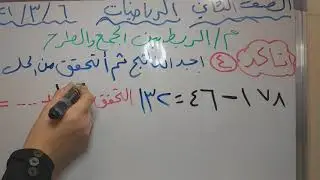 الصف الثاني الرياضيات ٦/٣/
م/ الربط بين الجمع والطرح
أتأكد ٤ اجد الناتج ثم أتحقق من الحل
١٧٨ - ٤٦ = ١٣٢ التحقق